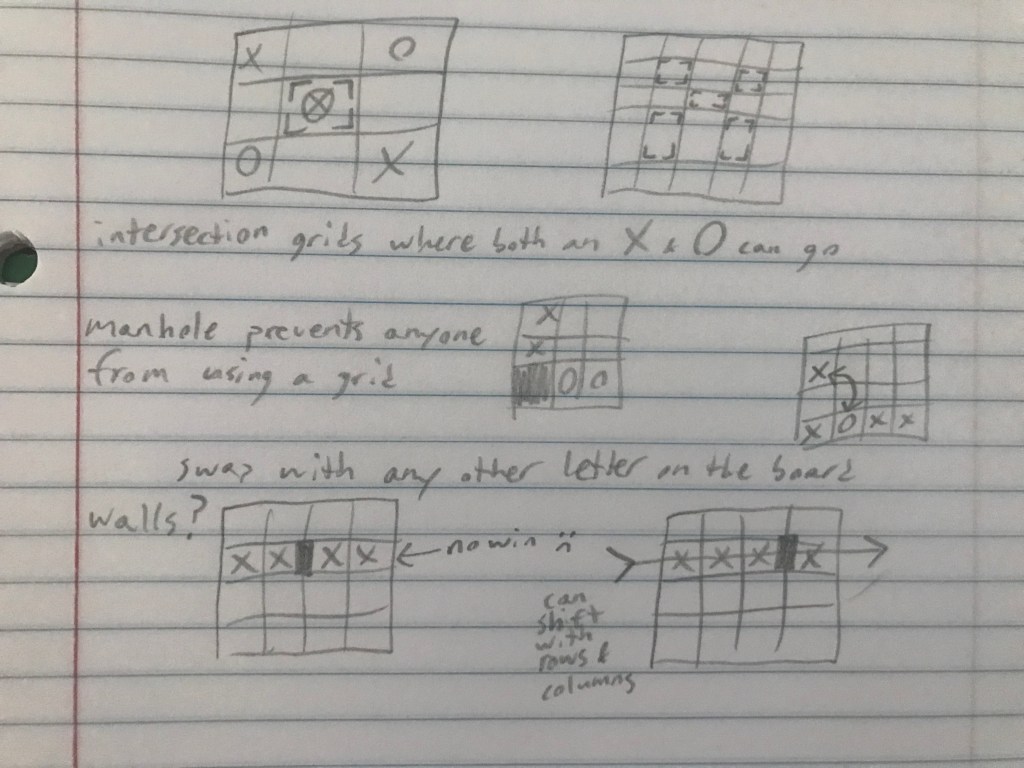 X O
⊗
O X
intersection grids where both an X & O can go
manhole prevents anyone
from using a grid
X
X
O O
X
X O X X
swap with any other letter on the board
walls?
X X X X ← no win :(
X X X X
can
shift
with
rows &
columns